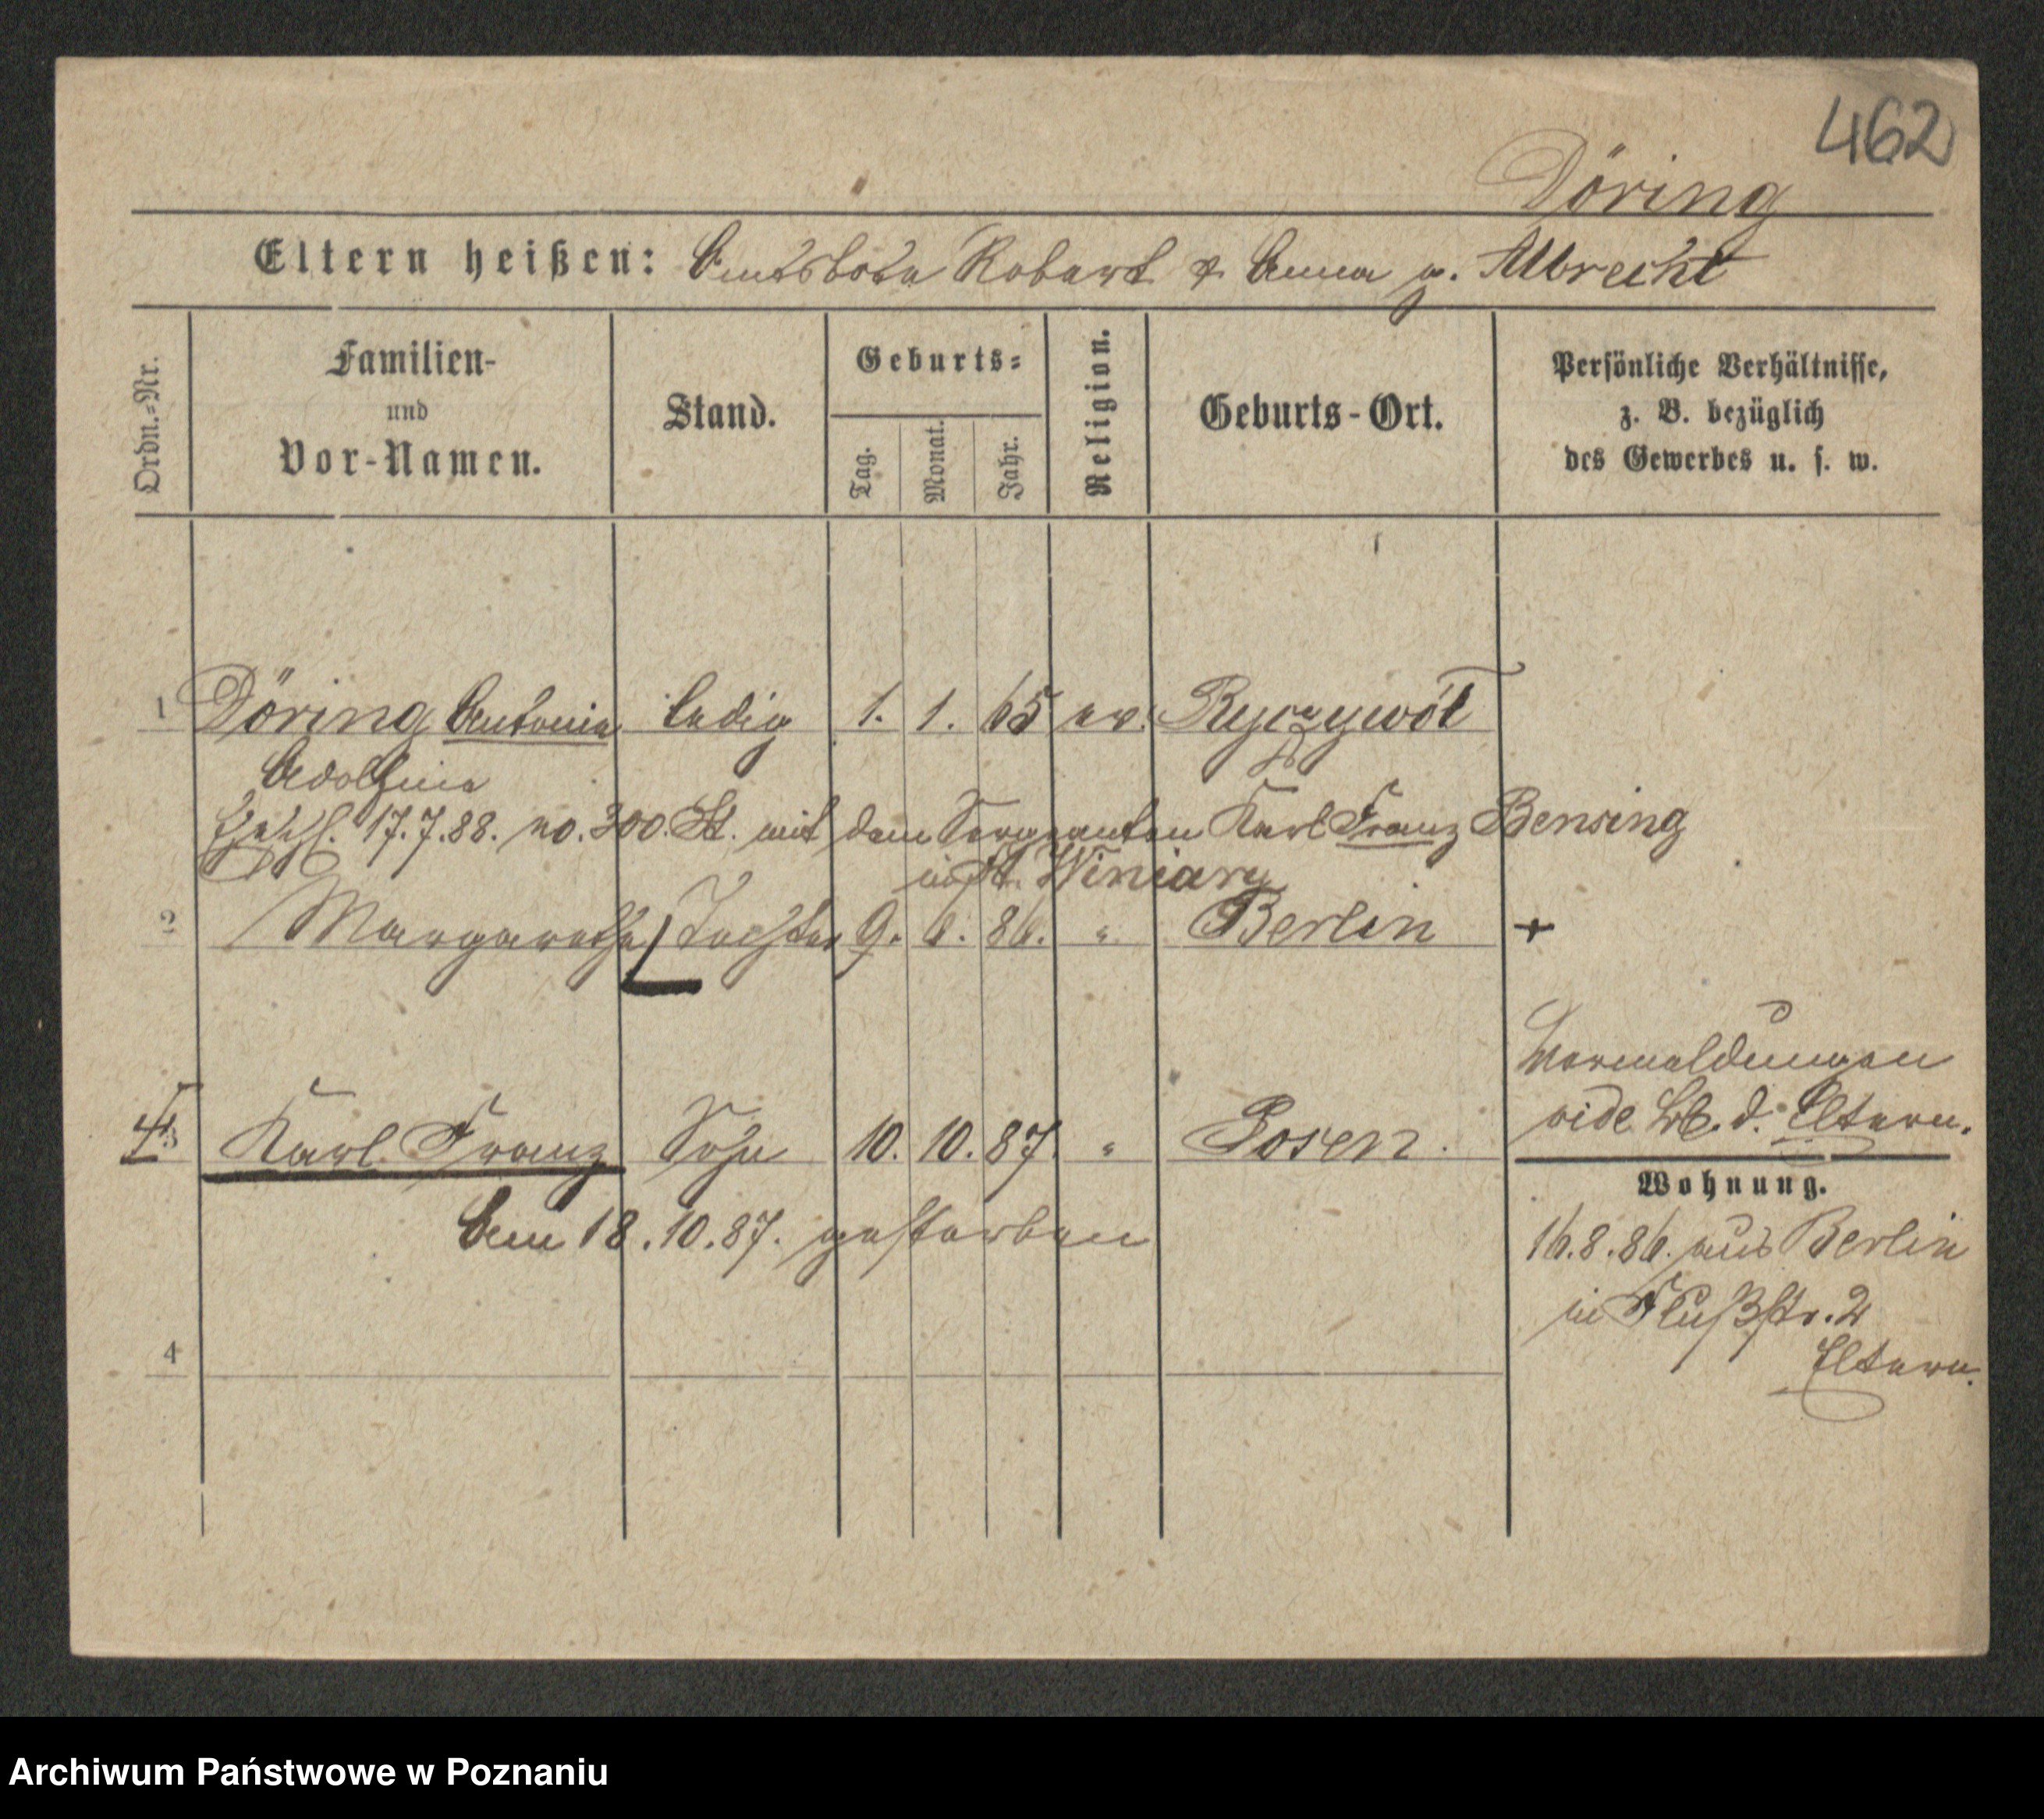 462
Döring
Eltern heißen: Amtsbote Robert & Anna g. Albrecht
Ordn.-Nr.
Familien-
und
Vor-Namen.
Stand.
Geburts-
Tag.
Monat.
Jahr.
Religion.
Geburts-Ort.
Persönliche Verhältnisse,
z. B. bezüglich
des Gewerbes u. s. w.
1 Döring Antonie ledig 1. 1. 65 ev. Ryczywół
Adolfine
17.7.88. no. 300. St. mit dem Sergeanten Karl Franz Bensing
in St. Winiary
2 Margarethe Tochter 9. 6. 86. " Berlin +
Vormeldungen
vide d. Eltern.
3 Karl Franz Sohn 10. 10. 87. " Posen.
Am 18.10.87. gestorben
Wohnung.
16.8.86. aus Berlin
in Flußstr. 2
Eltern.
4
Archiwum Państwowe w Poznaniu